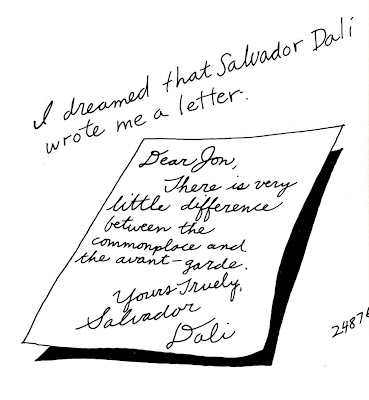 I dreamed that Salvador Dali
wrote me a letter.
Dear Jon,
There is very
little difference
between the
commonplace and
the avant-garde.
Yours Truely,
Salvador
Dali